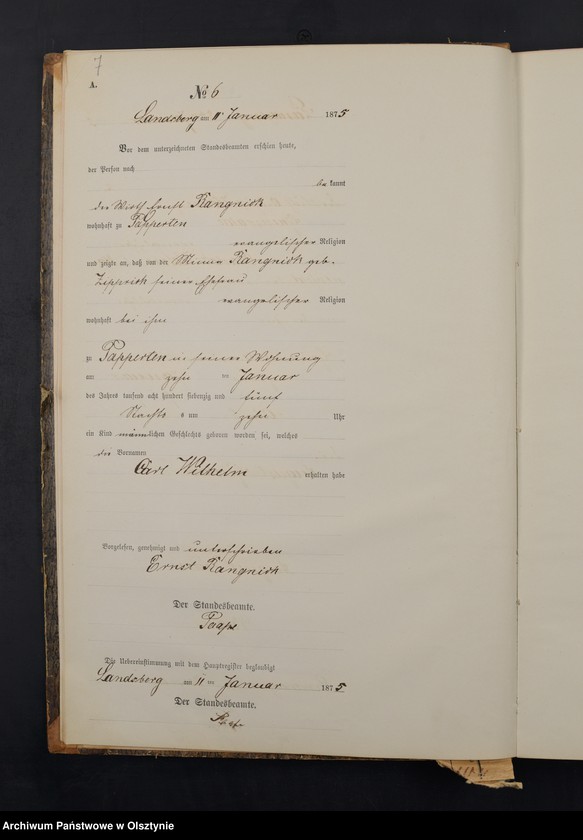 7
A.
No 6
Landsberg am 11 Januar 1875
Vor dem unterzeichneten Standesbeamten erschien heute,
der Person nach
be kannt
der Wirth Ernst Rangnick
wohnhaft zu Papperten
evangelischer Religion
und zeigte an, daß von der Minna Rangnick geb.
seiner Ehefrau
evangelischer Religion
wohnhaft bei ihm
zu Papperten in seiner Wohnung
am zehn ten Januar
des Jahres tausend acht hundert siebenzig und fünf
Nachts um zehn Uhr
ein Kind männlichen Geschlechts geboren worden sei, welches
die Vornamen
Carl Wilhelm erhalten habe
Vorgelesen, genehmigt und unterschrieben
Ernst Rangnick
Der Standesbeamte.
Die Uebereinstimmung mit dem Hauptregister beglaubigt
Landsberg am 11 ten Januar 1875
Der Standesbeamte.
Archiwum Państwowe w Olsztynie